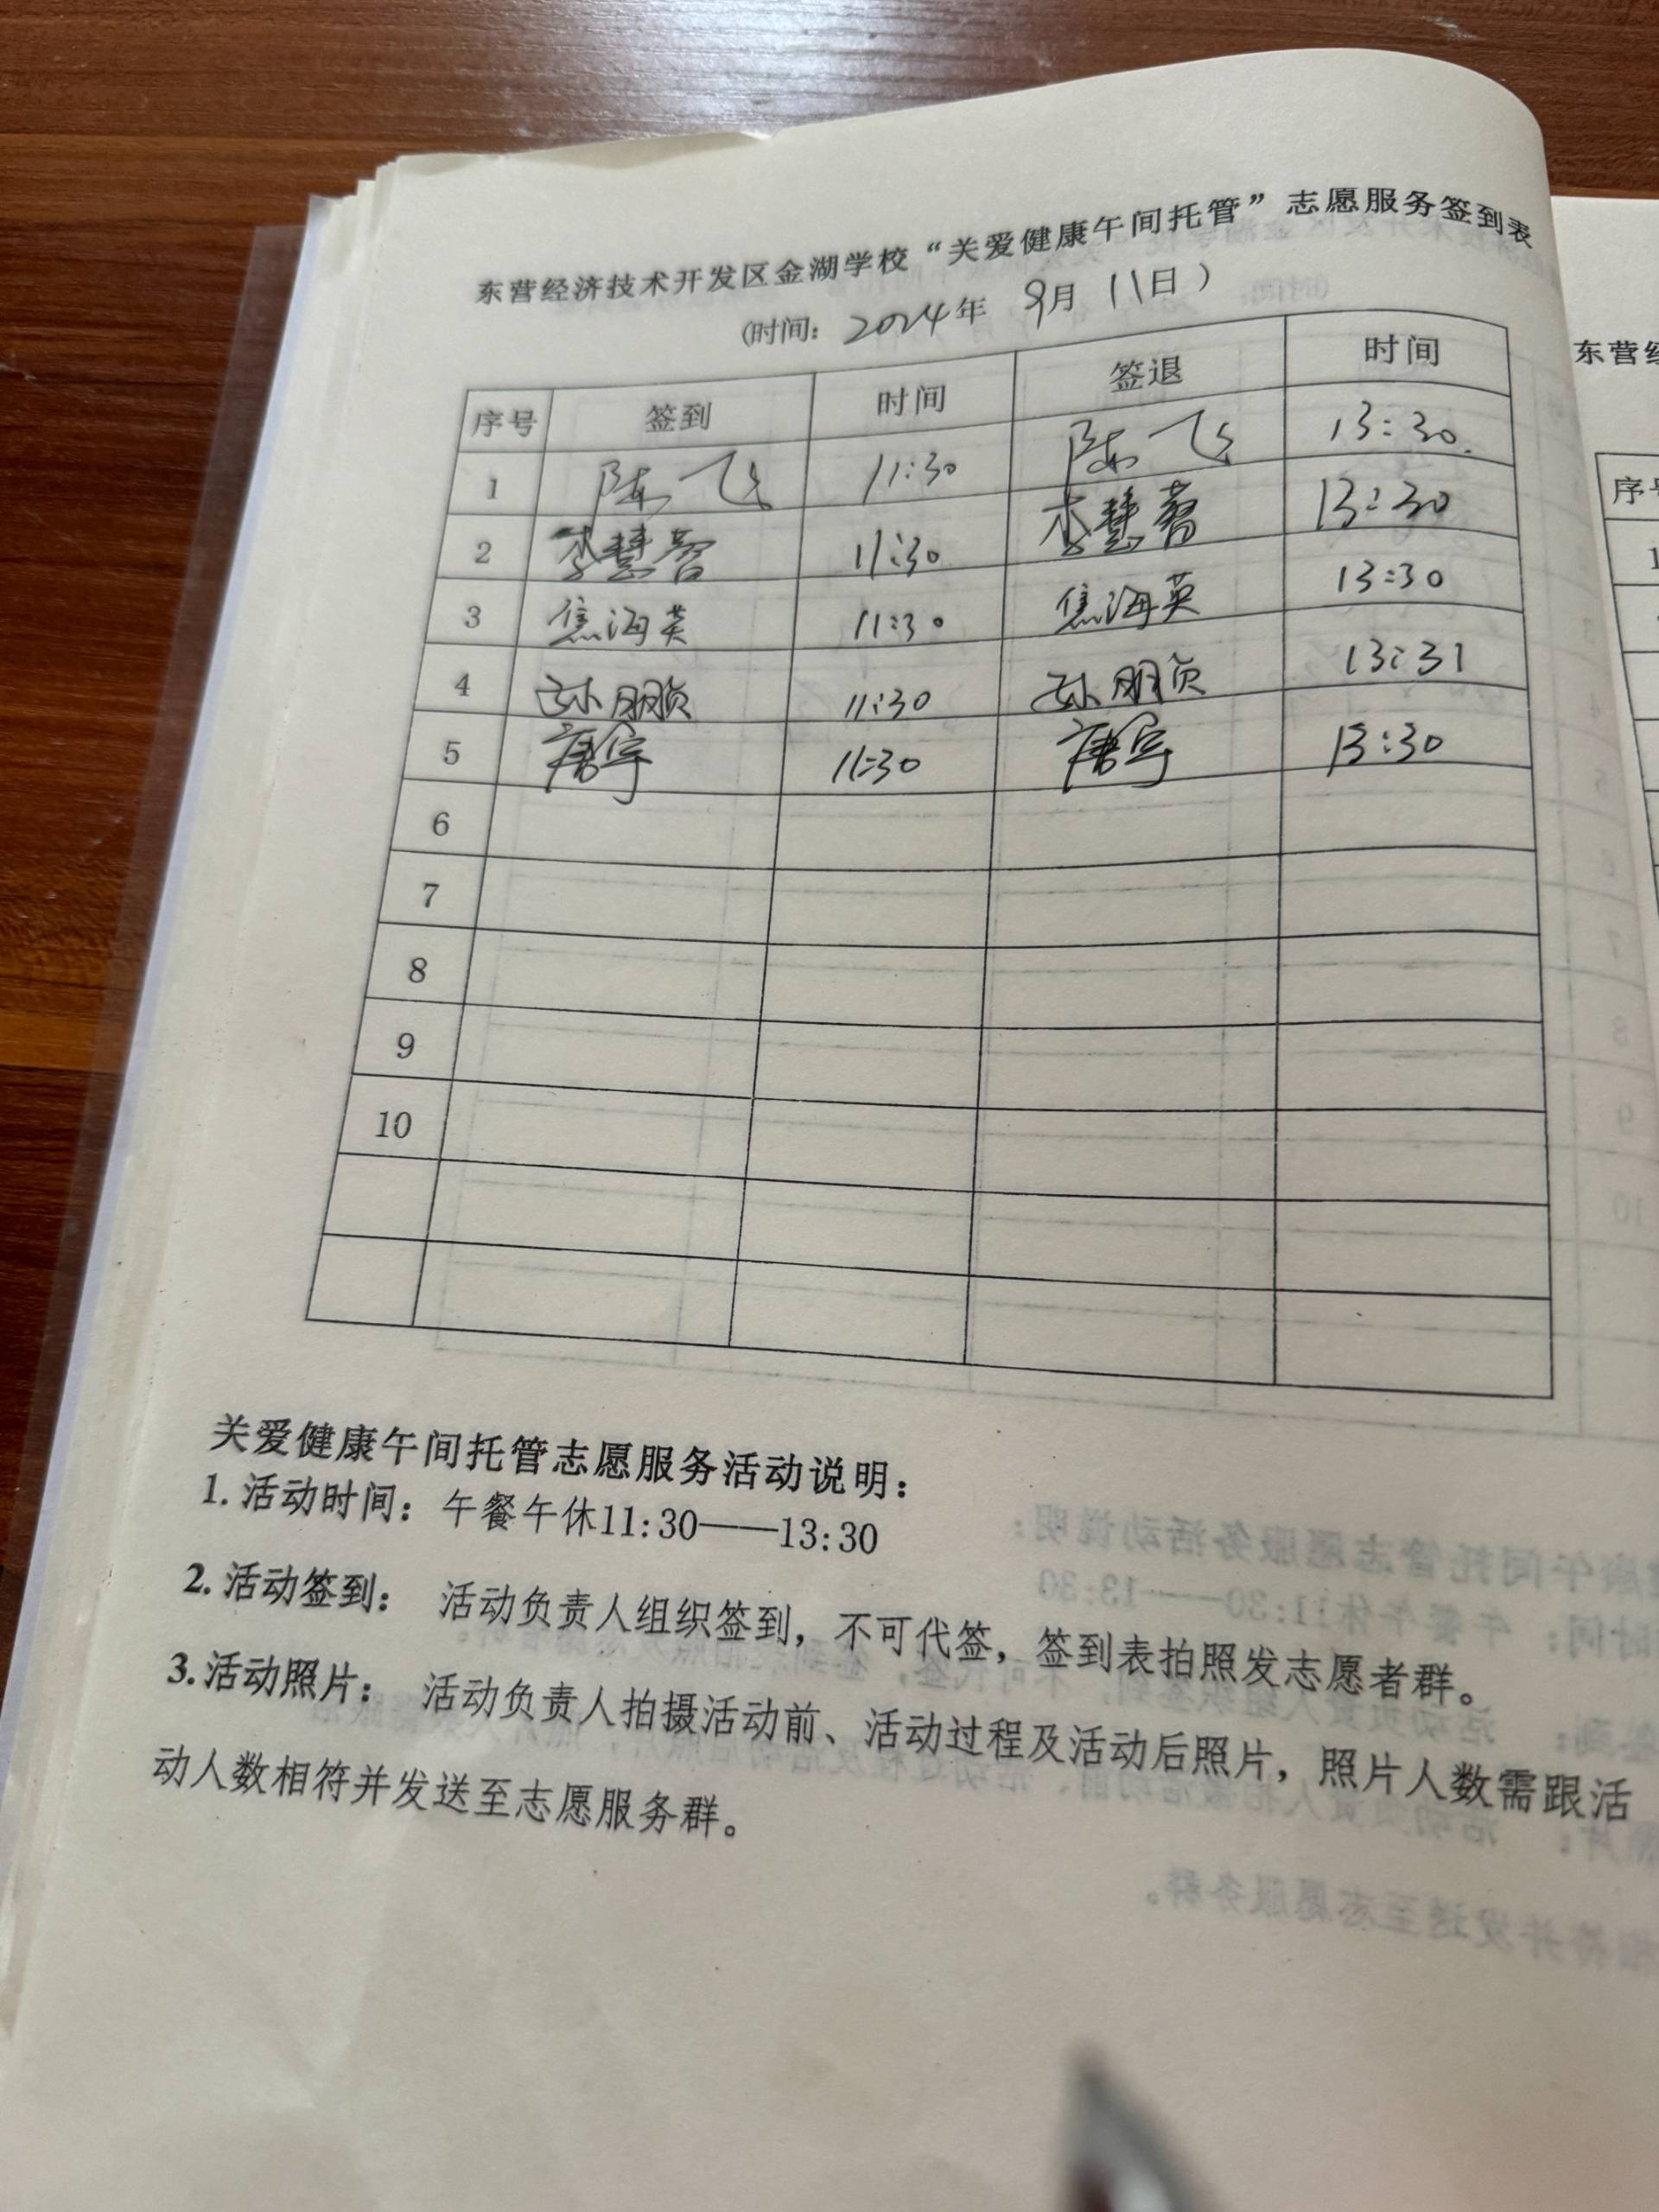 东营经济技术开发区金湖学校“关爱健康午间托管”志愿服务签到表
(时间: 2024年 9月 11日)
序号 签到 时间 签退 时间
1 陈飞 11:30 陈飞 13:30
2 李慧蓉 11:30 李慧蓉 13:30
3 焦海英 11:30 焦海英 13:30
4 孙朋贞 11:30 孙朋贞 13:31
5 唐宇 11:30 唐宇 13:30
6
7
8
9
10
关爱健康午间托管志愿服务活动说明:
1.活动时间: 午餐午休11:30——13:30
2.活动签到: 活动负责人组织签到,不可代签,签到表拍照发志愿者群。
3.活动照片: 活动负责人拍摄活动前、活动过程及活动后照片,照片人数需跟活
动人数相符并发送至志愿服务群。
东营经
序号
1